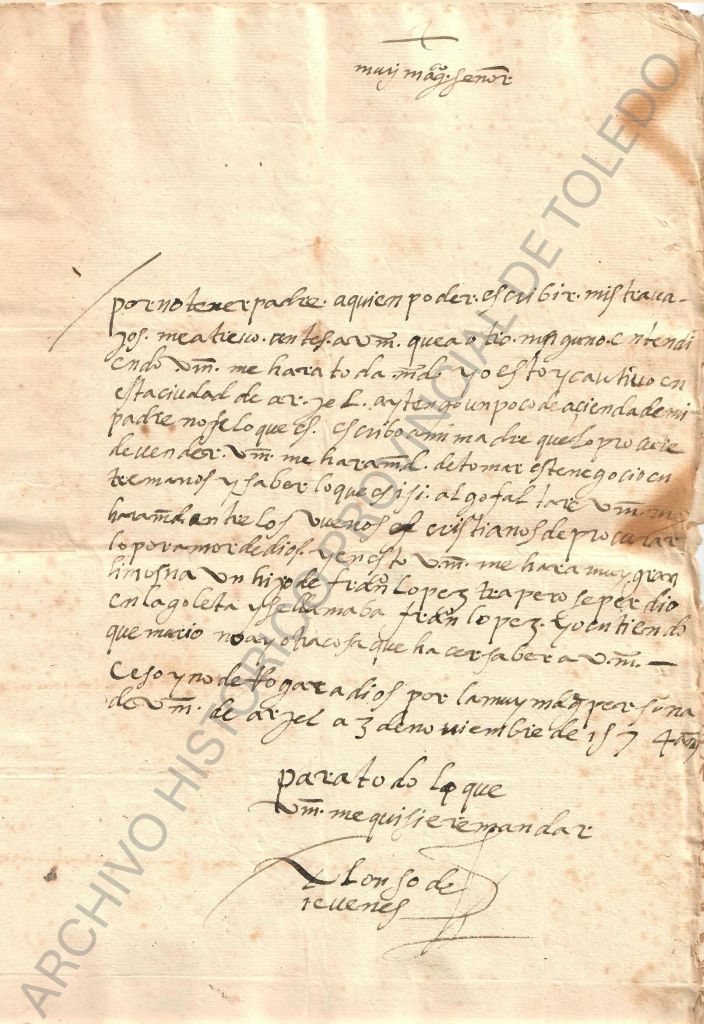 muy mag.co señor
por no tener padre. a quien poder. escribir. mis trava-
jos. me atrevo. antes. a v.m. que a otro. ninguno. entendi
endo v.m. me hara toda md. yo estoy cautivo en
esta ciudad de arjel. ay tengo un poco de acienda de mi
padre no se lo que es. escribo a mi madre que lo procure
de vender. v.m. me hara md. de tomar este negocio en
tre manos y saber lo que es i si. algo faltare v.m. me
hara md. antre los vuenos cristianos de procurar
lo por amor de dios. y en esto v.m. me hara muy gran
limosna un hijo de fran.co lopez trapero se perdio
en la goleta y se llamaba fran.co lopez. yo entiendo
que murio no ay otra cosa que hacer saber a v.m. —
Ceso y no de Rogar a dios por la muy mag.ca persona
de v.m. de arjel a 3 de noviembre de 1574 años
para todo lo que
v.m. me quisiere mandar
Alonso de
ievenes
ARCHIVO HISTÓRICO PROVINCIAL DE TOLEDO